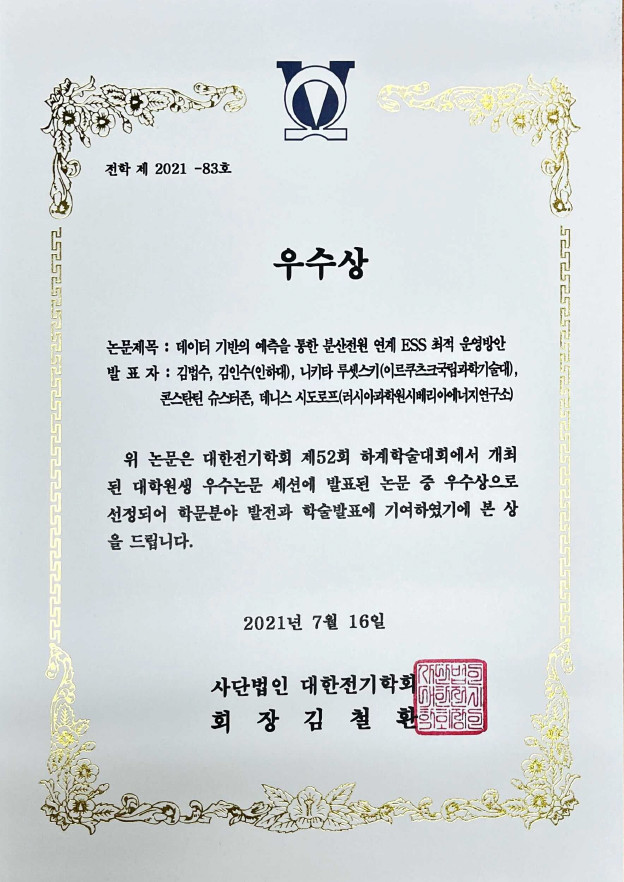 전학 제 2021 -83호
우수상
논문제목 : 데이터 기반의 예측을 통한 분산전원 연계 ESS 최적 운영방안
발 표 자 : 김법수, 김인수(인하대), 니키타 루셋스키(이르쿠츠크국립과학기술대),
콘스탄틴 슈스터존, 데니스 시도로프(러시아과학원시베리아에너지연구소)
위 논문은 대한전기학회 제52회 하계학술대회에서 개최
된 대학원생 우수논문 세션에 발표된 논문 중 우수상으로
선정되어 학문분야 발전과 학술발표에 기여하였기에 본 상
을 드립니다.
2021년 7월 16일
사단법인 대한전기학회
회 장 김 철 환